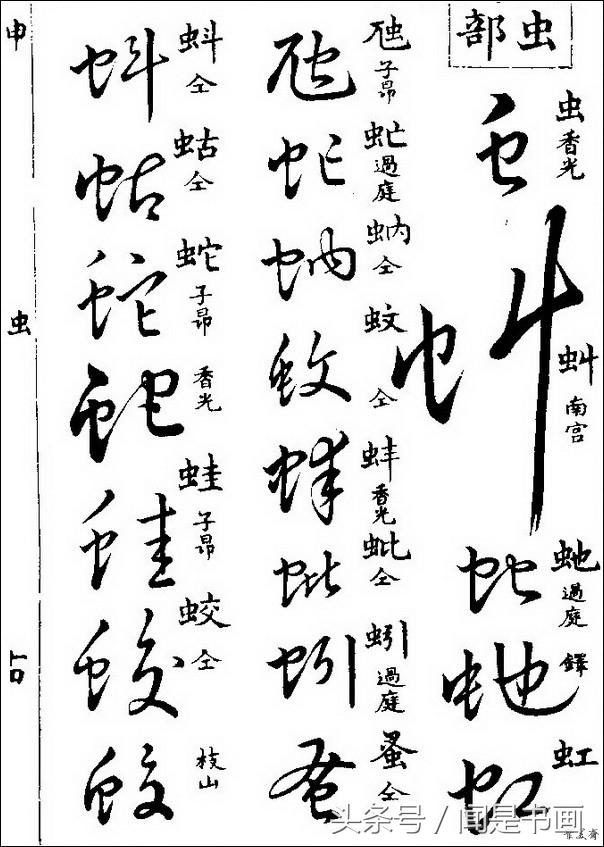 虫部
虫 香光
虯 南宫
虵 過庭
鐸
虹
虺 子昂
虻 過庭
蚋 仝
蚊 仝
蚌 香光
蚍 仝
蚓 過庭
蚤 仝
蚪 仝
蛄 仝
蛇 子昂
香光
蛙 子昂
蛟 仝
枝山
申
虫
头条号 / 闻是书画